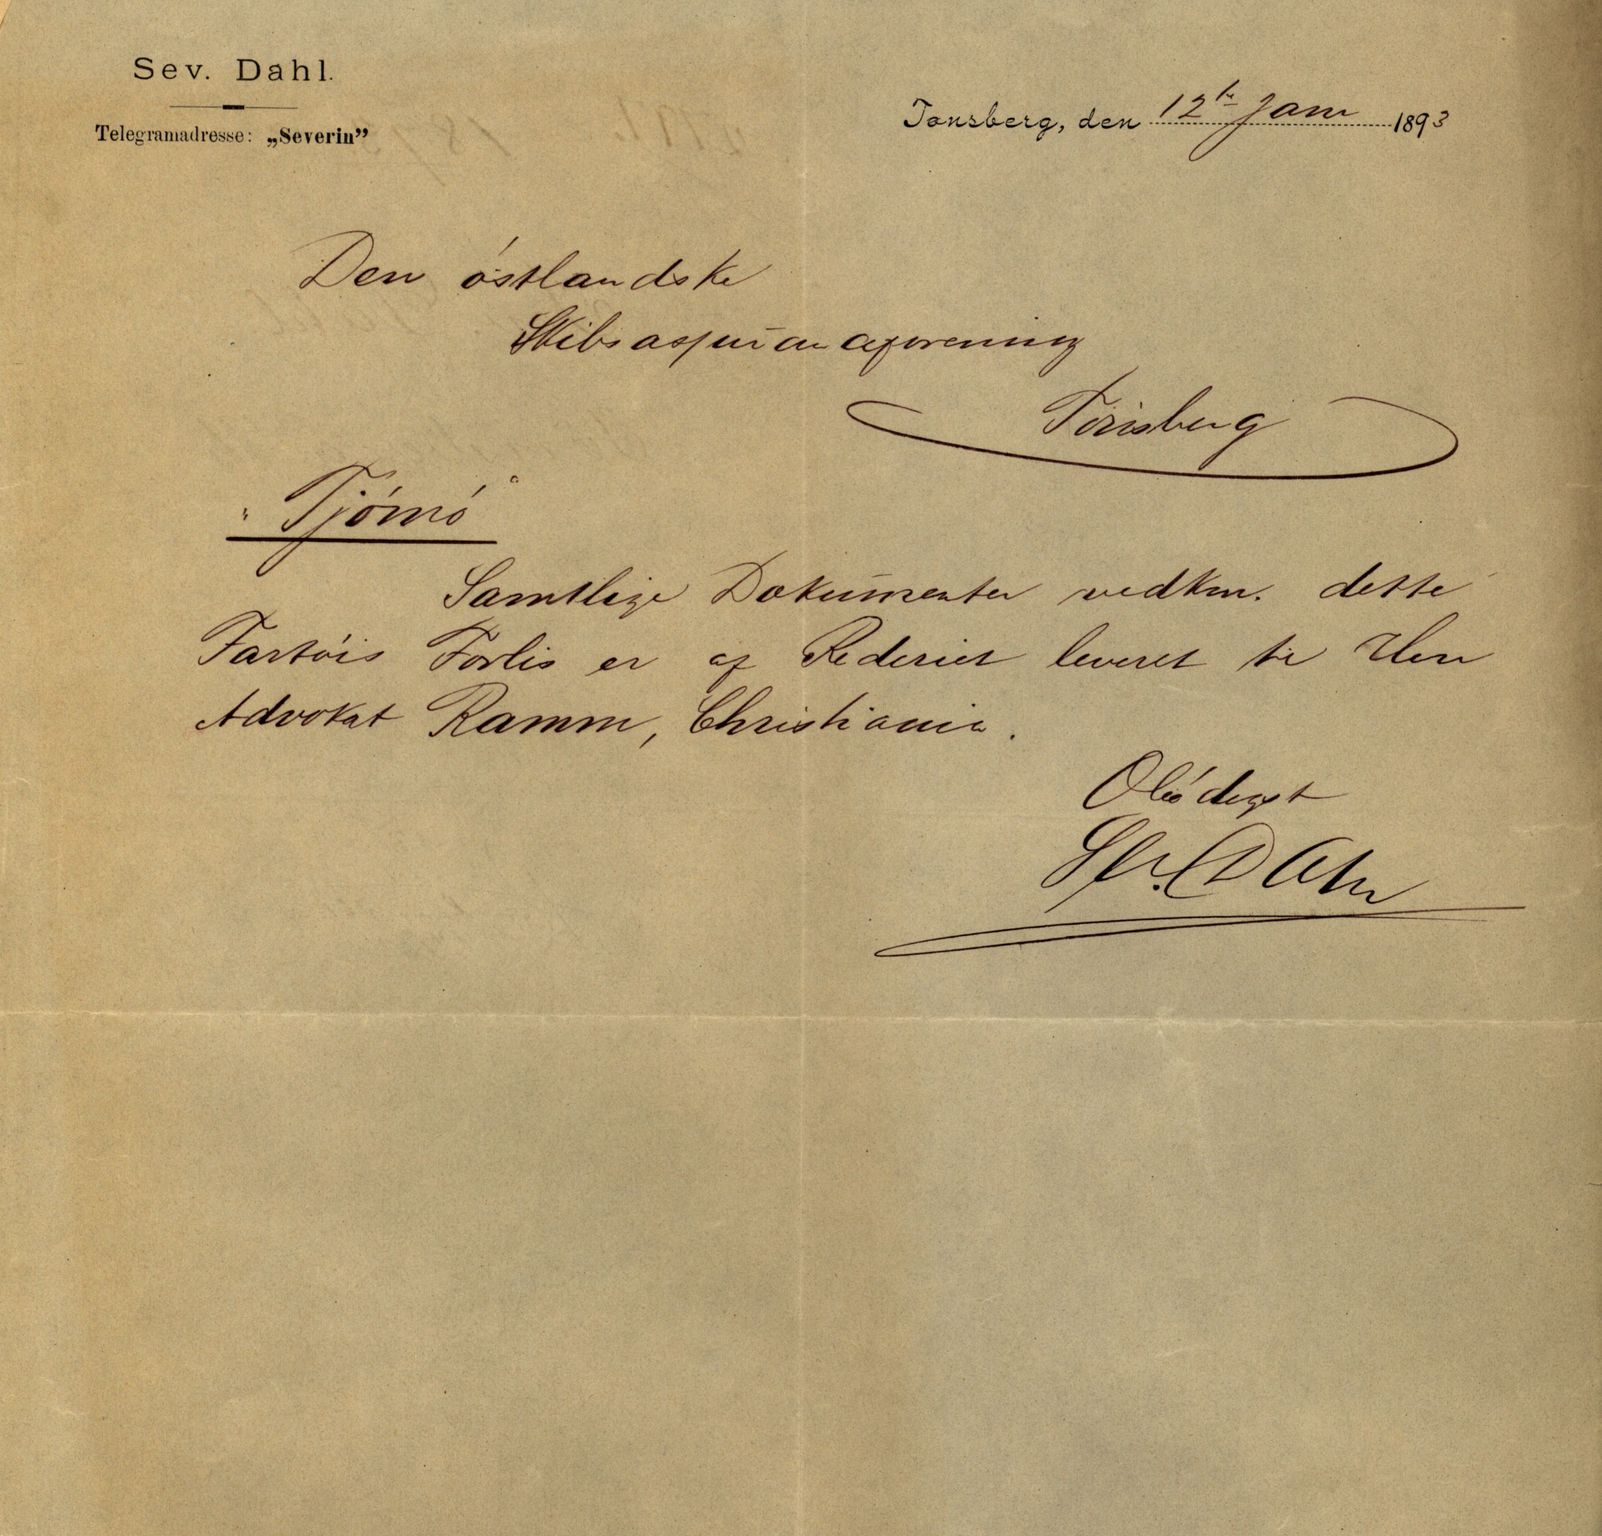 Sev. Dahl.
Telegramadresse: „Severin”
Tønsberg, den 12te Jan 1893
Den østlandske
Skibsassuranceforening
Tønsberg
"Tjømø"
Samtlige Dokumenter vedkm. dette
Fartøis Forlis er af Rederiet leveret til Herr
Advokat Ramm, Christiania.
Sev. Dahl